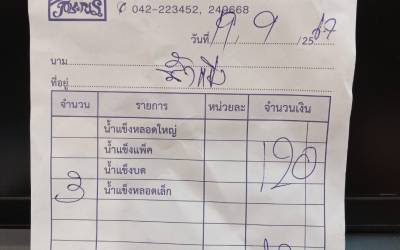 ✆ 042-223452, 249668
วันที่ 9/ 9 /25 67
นาม
ที่อยู่
จำนวน รายการ หน่วยละ จำนวนเงิน
น้ำแข็งหลอดใหญ่
น้ำแข็งแพ็ค 120
น้ำแข็งบด
3 น้ำแข็งหลอดเล็ก